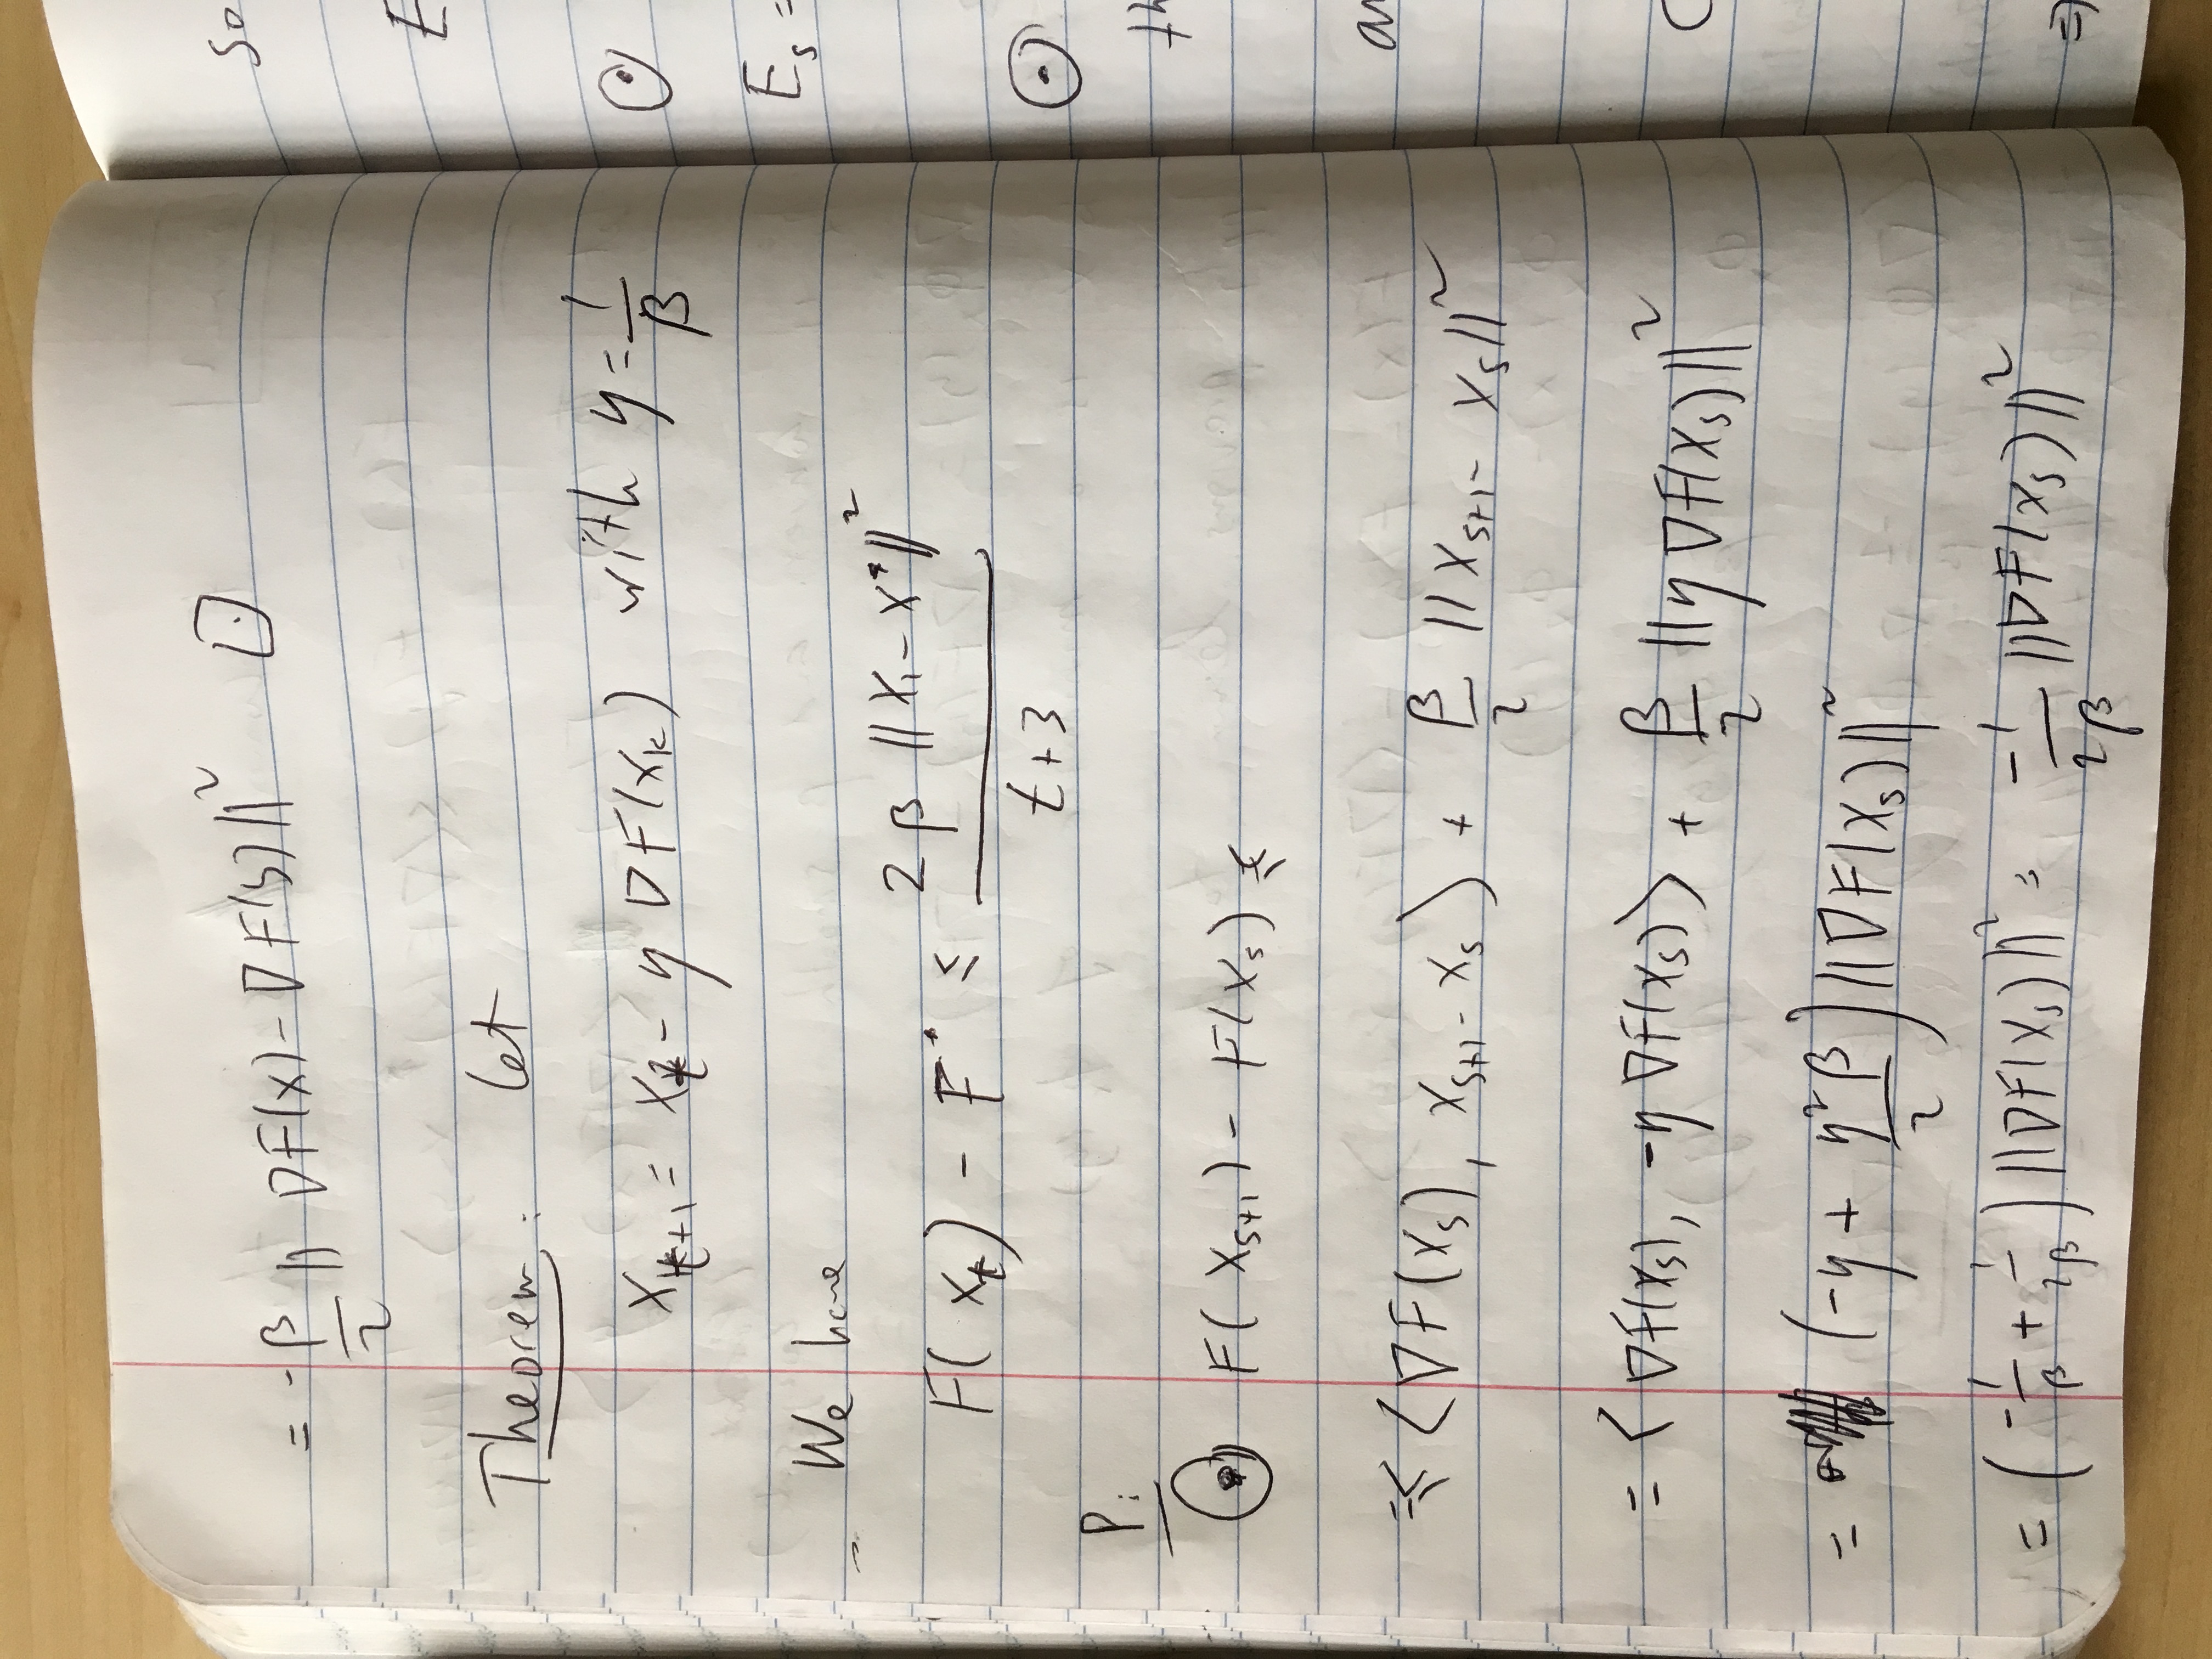 = -β/2 ‖ ∇F(x) - ∇F(y)‖² □
Theorem: Let
x_{t+1} = x_t - η ∇F(x_k) with η = 1/β
We have
F(x_t) - F* ≤ 2β ‖x_1 - x*‖² / t+3
P:
⊙ F(x_{s+1}) - F(x_s) ≤
≤ ⟨∇F(x_s), x_{s+1} - x_s⟩ + β/2 ‖x_{s+1} - x_s‖²
= ⟨∇F(x_s), -η ∇F(x_s)⟩ + β/2 ‖η ∇F(x_s)‖²
= (-η + η²β/2) ‖∇F(x_s)‖²
= (-1/β + 1/2β) ‖∇F(x_s)‖² = -1/2β ‖∇F(x_s)‖²
so
E
⊙
E_s =
⊙
th
⇒